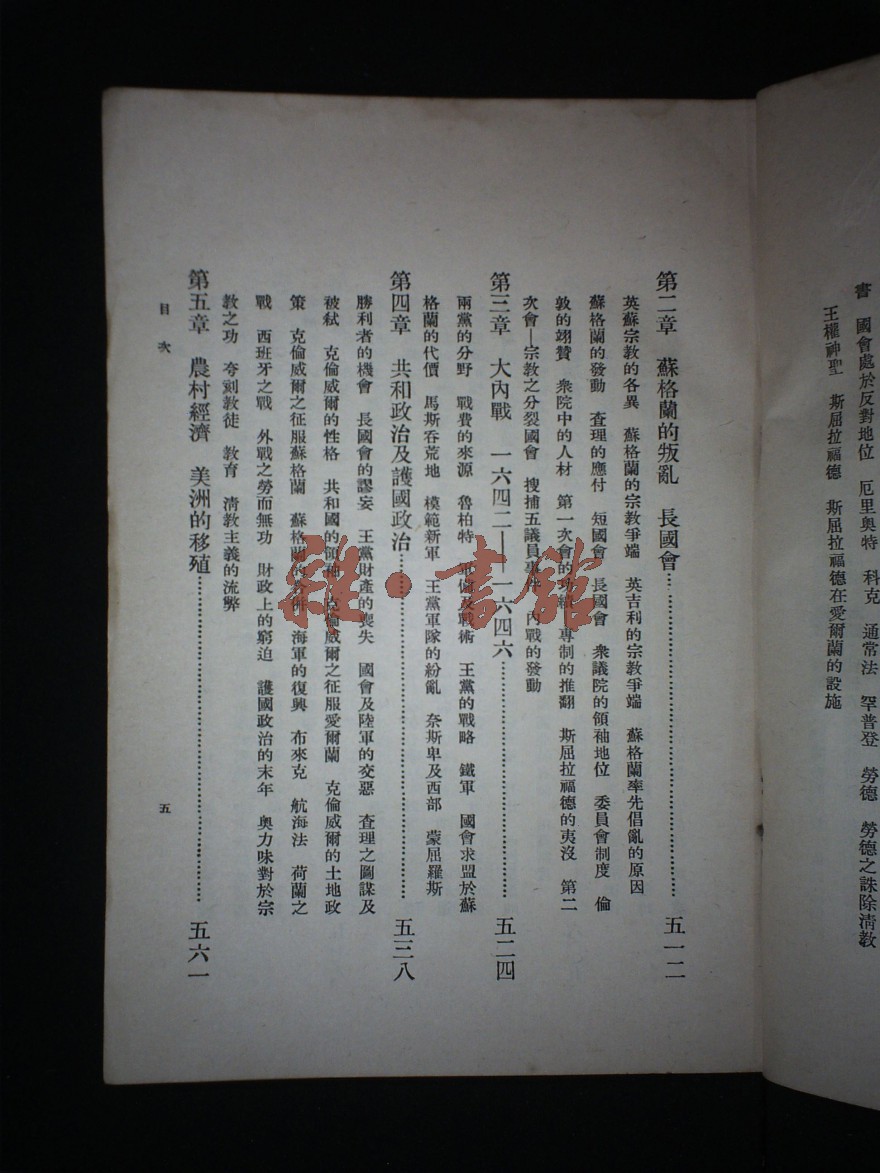 書　國會處於反對地位　厄里奧特　科克　通常法　罕普登　勞德　勞德之誅除清教
王權神聖　斯屈拉福德　斯屈拉福德在愛爾蘭的設施
第二章　蘇格蘭的叛亂　長國會……五一二
英蘇宗教的各異　蘇格蘭的宗教爭端　英吉利的宗教爭端　蘇格蘭率先倡亂的原因
蘇格蘭的發動　查理的應付　短國會　長國會　衆議院的領袖地位　委員會制度　倫
敦的翊贊　衆院中的人材　第一次會的功績　專制的推翻　斯屈拉福德的夷沒　第二
次會—宗教之分裂國會　搜捕五議員事件　內戰的發動
第三章　大內戰　一六四二——一六四六……五二四
兩黨的分野　戰費的來源　魯柏特　及戰術　王黨的戰略　鐵軍　國會求盟於蘇
格蘭的代價　馬斯吞荒地　模範新軍　王黨軍隊的紛亂　奈斯卑及西部　蒙屈羅斯
第四章　共和政治及護國政治……五三八
勝利者的機會　長國會的謬妄　王黨財產的喪失　國會及陸軍的交惡　查理之圖謀及
被弒　克倫威爾的性格　共和國的領袖　克倫威爾之征服愛爾蘭　克倫威爾的土地政
策　克倫威爾之征服蘇格蘭　蘇格蘭的合併　海軍的復興　布來克　航海法　荷蘭之
戰　西班牙之戰　外戰之勞而無功　財政上的窮迫　護國政治的末年　奧力味對於宗
教之功　夸刻教徒　教育　清教主義的流弊
第五章　農村經濟　美洲的移殖……五六一
目次
五
雜·書館